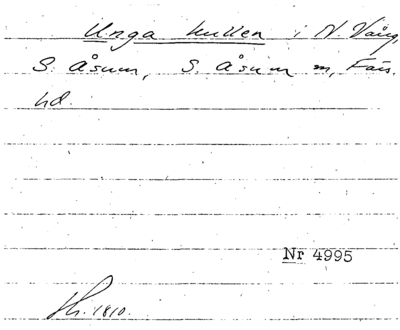 Unga kullen i N. Vång,
S. Åsum, S. Åsum sn, Färs
hd.
Nr 4995
1810.